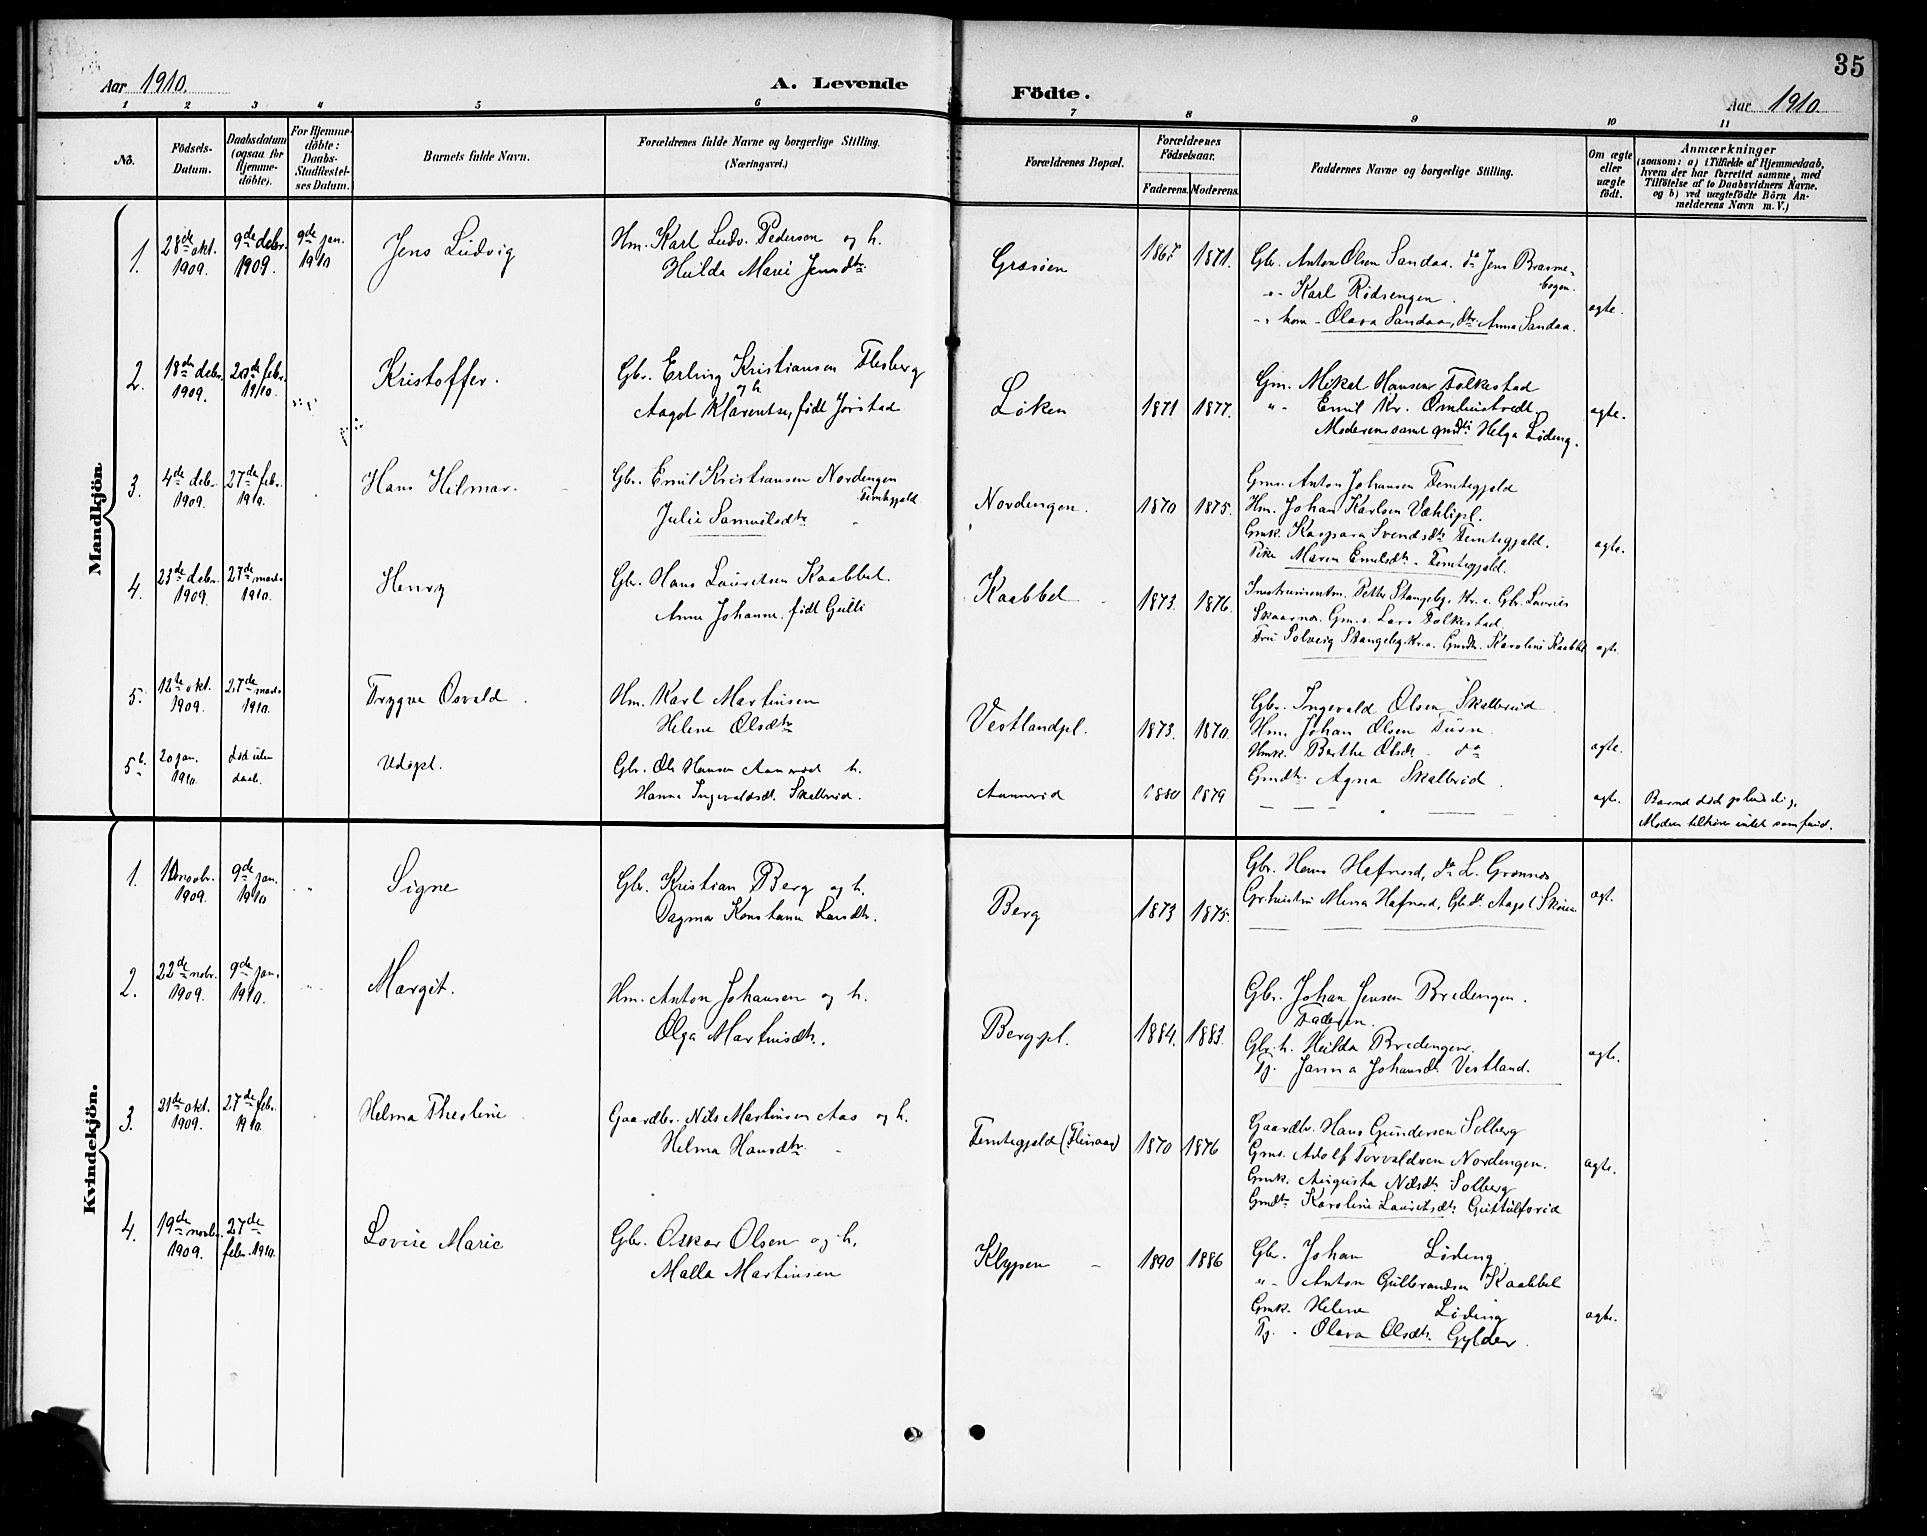 35
Aar 1910.
A. Levende
Födte.
Aar 1910.
1 2 3 4 5 6 7 8 9 10 11
No.
Födsels-
Datum.
Daabsdatum
(ogsaa for
Hjemme-
döbte).
For Hjemme-
döbte:
Daabs-
Stadfæstel-
ses Datum.
Barnets fulde Navn.
Forældrenes fulde Navne og borgerlige Stilling.
(Næringsvei.)
Forældrenes Bopæl.
Forældrenes
Födselsaar.
Faderens. Moderens.
Faddernes Navne og borgerlige Stilling.
Om ægte
eller
uægte
födt.
Anmærkninger
(saasom: a) i Tilfælde af Hjemmedaab,
hvem der har forrettet samme, med
Tilföielse af to Daabsvidners Navne.
og b) ved uægtefödte Börn An-
melderens Navn m. V.)
Mandkjön
1.
28de okt.
1909.
9de debr.
1909.
9de jan.
1910
Jens Ludvig
Hm. Karl Ludv. Pedersen og h.
Hulda Marie Jensdtr
Grasøen
1867. 1871.
Gbr. Anton Olsen Sandaa. do Jens Brasne-
bogen.
-"- Karl Rødsengen.
-"- kone - Olava Sandaa, dtr Anna Sandaa.
ægte.
2.
18de debr.
1909.
20de febr.
1910.
Kristoffer.
Gbr. Erling Kristiansen Flesberg
og h
Aagot Klarentse, født Jorstad
Løken
1871 1877.
Gm. Mikal Hansen Folkestad
"- Emil Kr. Omholtvedt.
Moderen samt gmdtr Helga Løding.
ægte.
3.
4de debr.
1909.
27de febr.
1910.
Hans Hilmar.
Gbr. Emil Kristiansen Nordengen
Femtegjeld
Julie Samuelsdtr
Nordengen.
1870 1875.
Gms. Anton Johansen Femtegjeld
Hm. Johan Karlsen Væhlipl.
Gmk. Kaspara Svendsdtr Femtegjeld.
Pike Maren Emilsdtr. Femtegjeld.
ægte.
4.
23de debr.
1909.
27de mars
1910.
Henry
Gbr. Hans Lauritsen Kaabbel.
Anne Johanne, født Gulli
Kaabbel
1873. 1876.
Instrumentm. Petter Stangeby. Kr.a. Gbr. Lauris
Skaarnes. Gms. Lars Folkestad.
Fru Solveig Stangeby. Kr.a. Gmdtr. Karoline Kaabbel
ægt.
5.
12te okt.
1909.
27de mars
1910.
Trygve Osvald.
Hm. Karl Martinsen
Helene Olsdtr
Vestlandpl.
1873. 1870.
Gbr. Ingevald Olsen Skallerud
Hm. Johan Olsen Tusn.
Hmk. Berthe Olsdtr. do
Gmdtr. Agna Skallerud.
ægte.
5b
20 jan.
1910.
død uden
daab.
Udøpt.
Gbr. Ole Hansen Aannerød h.
Hanna Ingevaldsdtr. Skallerud.
Aannerød
1880 1879
ægte.
Barnet døde pludselig.
Modern tilhører intet samfund.
Kvindekjön.
1.
10 novbr.
1909.
9de jan.
1910
Signe
Gbr. Kristian Berg og h.
Dagmar Konstance Larsdtr.
Berg
1873 1875.
Gbr. Hans Hafnord, do L. Grønnes
Gbr.hustru Mina Hafnord, Gbdtr. Aagot Skøien
ægt.
2.
22de nobr.
1909.
9de jan.
1910.
Margit.
Hm. Anton Johansen og h.
Olga Martinsdtr.
Bergspl.
1884. 1883.
Gbr. Johan Jensen Bredengen.
Faderen.
Gbr.h. Hulda Bredengen.
Pj. Janna Johansdtr Vestland.
ægte.
3.
21de okt.
1909.
27de febr.
1910.
Helma Thesline
Gaardbr. Nils Martinsen Aas og h.
Helma Hansdtr
Femtegjeld (Flensaas)
1870 1876
Gaardbr. Hans Gundersen Solberg
Gms. Adolf Torvaldsen Nordengen.
Gmk. Augusta Nilsdtr. Solberg
Gmdtr Karoline Lauritsdtr. Guttulfsrød
ægte.
4.
19de novbr.
1909.
27de
febr. 1910.
Lovise Marie
Gbr. Oskar Olsen og h.
Malla Martinsen
Klypen
1890 1886
Gbr. Johan Løding
"- Anton Gulbrandsen Kaabbel
Gmk. Helene Løding
Pj. Olava Olsdtr. Gylder.
ægte.